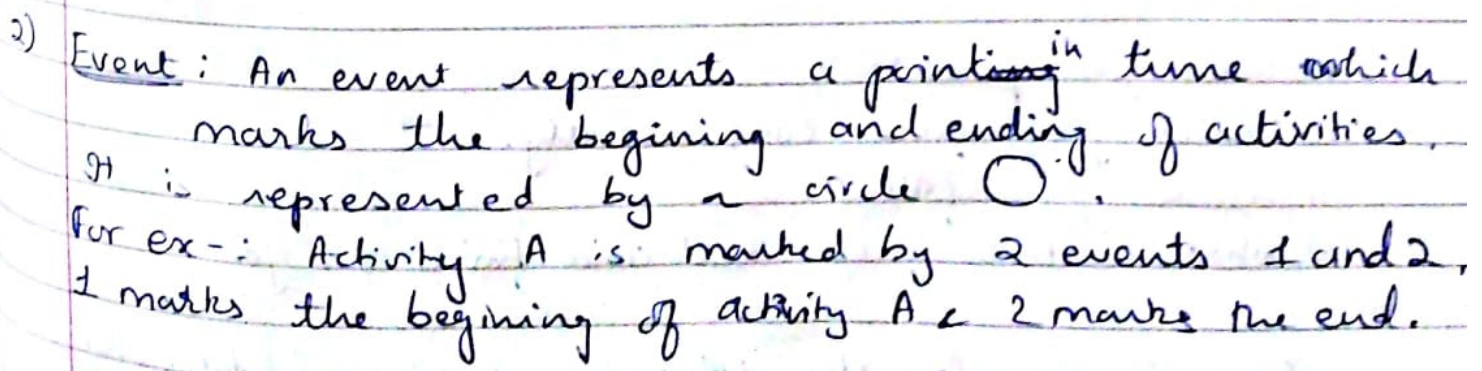 2) Event : An event represents a point in time which
marks the begining and ending of activities.
It is represented by a circle ○.
For ex-: Activity A is marked by 2 events 1 and 2,
1 marks the begining of activity A & 2 marks the end.